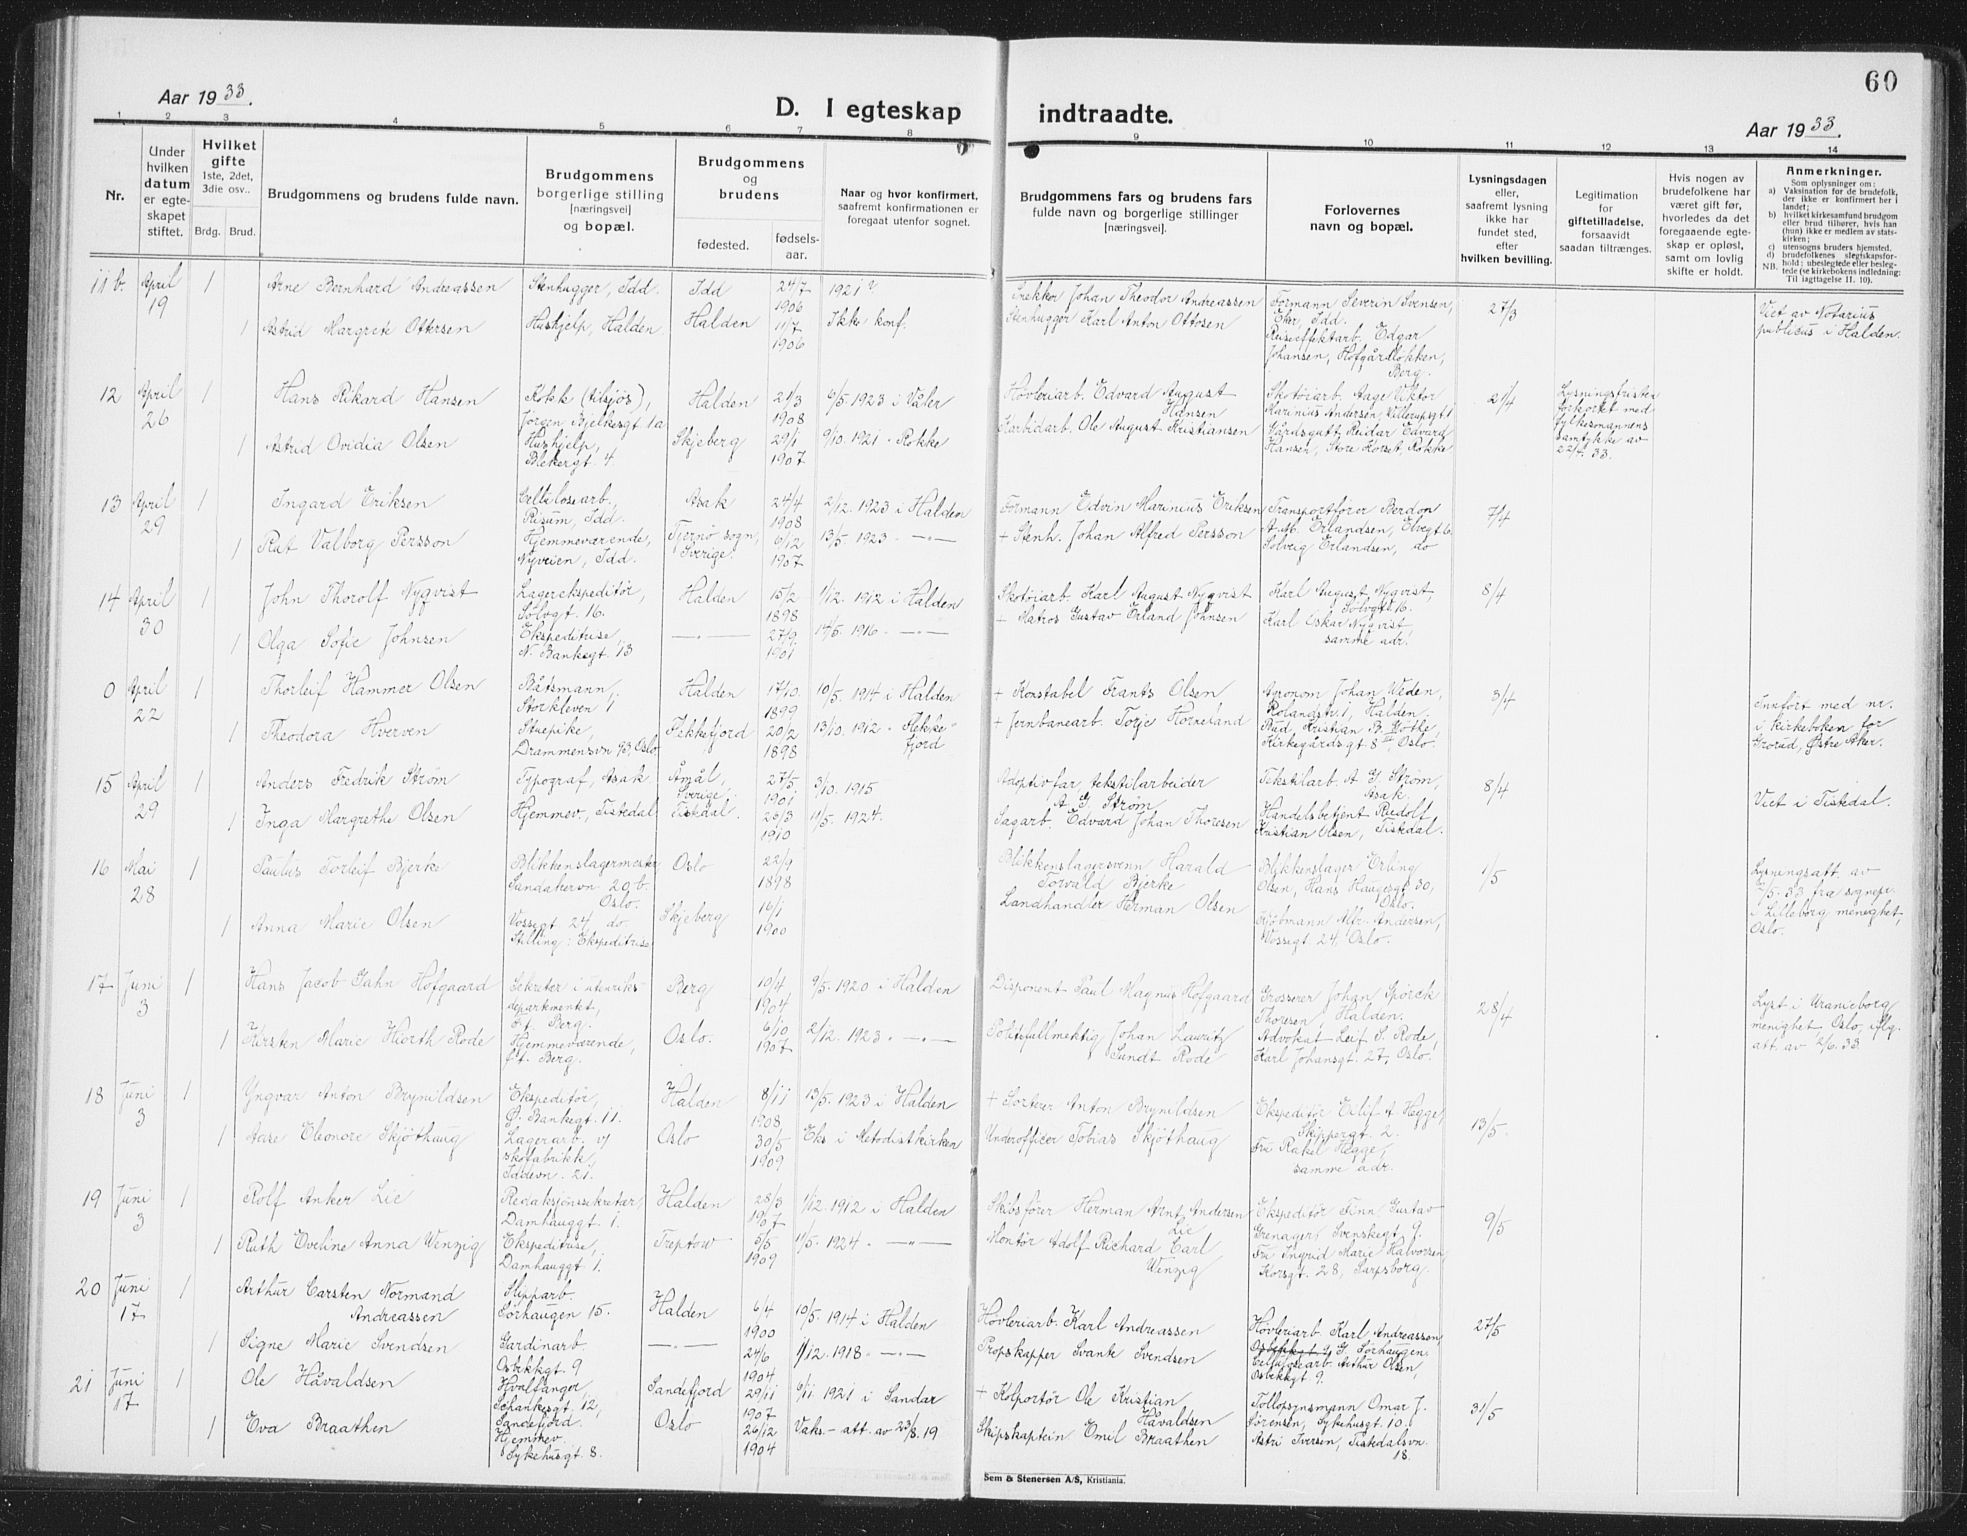 60
Aar 1933.
D. I egteskap indtraadte.
Aar 1933.
1 2 3 4 5 6 7 8 9 10 11 12 13 14
Nr.
Under hvilken datum er egteskapet stiftet.
Hvilket gifte 1ste, 2det, 3die osv..
Brdg. Brud.
Brudgommens og brudens fulde navn.
Brudgommens borgerlige stilling [næringsvei] og bopæl.
Brudgommens og brudens
fødested.
fødselsaar.
Naar og hvor konfirmert, saafremt konfirmationen er foregaat utenfor sognet.
Brudgommens fars og brudens fars fulde navn og borgerlige stillinger [næringsvei].
Forlovernes navn og bopæl.
Lysningsdagen eller, saafremt lysning ikke har fundet sted, efter hvilken bevilling.
Legitimation for giftetilladelse, forsaavidt saadan tiltrænges.
Hvis nogen av brudefolkene har været gift før, hvorledes da det foregaaende egteskap er opløsl, samt om lovlig skifte er holdt.
Anmerkninger.
Som oplysninger om:
a) Vaksination for de brudefolk, der ikke er konfirmert her i landet;
b) hvilket kirkesamfund brudgom eller brud tilhører, hvis han (hun) ikke er medlem av statskirken;
c) utensogns bruders hjemsted.
d) brudefolkenes slegtskapsforhold: ubeslegtede eller beslegtede (se kirkebokens indledning:
NB. Til iagttagelse II. 10).
11 b. April 19 1 Arne Bernhard Andreassen Stenhugger, Idd. Idd 24/7 1906 1921 Johan Theodor Andreassen Formann Severin Svensen, Eker, Idd. 27/3 Viet av Notarius publicus i Halden.
1 Astrid Margrete Ottersen Hushjelp, Halden Halden 11/7 1906 Ikke konf. Stenhugger Karl Anton Ottosen Reiseeffektarb. Edgar Johansen, Hofgårdløkken, Berg.
12 April 26 1 Hans Rikard Hansen Kokk (tilsjøs), Jørgen Bjelkesgt 1a Halden 21/3 1908 6/5 1923 i Våler Høvleriarb. Edvard August Hansen Skotøiarb. Aage Viktor Marinius Andersen, Villerupsgt 1 21/4 Lysningsfristen forkortet med fylkesmannens samtykke av 22/4. 33.
1 Astrid Ovidia Olsen Hushjelp, Blekergt. 4. Skjeberg 29/1 1907 9/10. 1921 - Rokke Karbidarb. Ole August Kristiansen Gårdsgutt Reidar Edvard Hansen, Store Korset, Rokke
13 April 29 1 Ingard Eriksen Cellulosearb., Risum, Idd. Asak 24/4 1908 2/12. 1923 i Halden Formann Edvin Marinius Eriksen Transportfører Berdon A.M. Erlandsen, Elvegt 6. 7/4
1 Rut Valborg Persson Hjemmeværende, Nyveien, Idd. Tjernø sogn, Sverige. 6/12 1907 13/5. 1923 -"- + Stenh. Johan Alfred Persson Solveig Erlandsen, do
14 April 30 1 John Thorolf Nyqvist Lagerekspeditør, Sølvgt. 16. Halden 15/2 1898 1/12. 1912 i Halden Skotøiarb. Karl August Nyqvist Karl August Nyqvist, Sølvgt. 16. 8/4
1 Olga Sofie Johnsen Ekspeditrise, N. Bankegt. 13 -"- 27/9 1901 14/5. 1916 -"- + Matros Gustav Erland Johnsen Karl Oskar Nyqvist samme adr.
0 April 22 1 Thorleif Hammer Olsen Båtsmann, Storkleven 1 Halden 17/10. 1899 10/5. 1914 i Halden + Konstabel Frants Olsen Agronom Johan Weden, Rolandstr. 1, Halden. 3/4 Innført med nr. i kirkeboken for Grorud, Østre Aker.
1 Theodora Hverven Stuepike, Drammensvn 43 Oslo Flekkefjord 20/2 1898 13/10. 1912 - Flekkefjord + Jernbanearb. Torje Horneland Bud, Kristian B. Gothe, Kirkegårdsgt 8, Oslo.
15 April 29 1 Anders Fredrik Strøm Typograf, Asak Åmål, Sverige. 27/5 1901 3/10. 1915 Adoptivfar tekstilarbeider A. G. Strøm Tekstilarb. A. G. Strøm, Asak. 8/4 Viet i Tistedal.
1 Inga Margrethe Olsen Hjemmev., Tistedal Tistedal. 26/3 1910 11/5. 1924. Sagarb. Edvard Johan Thoresen Handelsbetjent Rudolf Kristian Olsen, Tistedal.
16 Mai 28 1 Paulus Torleif Bjerke Blikkenslagermester Sandakervn. 20 b. Oslo. Oslo 22/9 1898 Blikkenslagersvenn Harald Torvald Bjerke Blikkenslager Erling Olsen, Hans Haugesgt 30, Oslo. 1/5 Lysningsatt. av 2/5. 33 fra sognepr. i Lilleborg menighet, Oslo.
1 Anna Marie Olsen Vossegt 24 do. Stilling: Ekspeditrise Skjeberg 16/1 1900 Landhandler Herman Olsen Kjøbmann Alb. Andersen, Vossegt. 24, Oslo.
17 Juni 3 1 Hans Jacob Jahn Hofgaard Sekretær i utenriksdepartementet, f.t. Berg. Berg 10/4 1904 9/5. 1920 i Halden Disponent Paul Magnus Hofgaard Grosserer Johan Spörck Thoresen, Halden. 28/4 Lyst i Uranieborg menighet, Oslo, iflg. att. av 2/6. 33.
1 Kirsten Marie Hiorth Rode Hjemmeværende, f.t. Berg. Oslo. 6/10 1907 2/12. 1923. -"- Politifullmektig Johan Lauritz Sundt Rode Advokat Leif S. Rode, Karl Johansgt. 27, Oslo.
18 Juni 3 1 Yngvar Anton Brynildsen Ekspeditør, Ø. Bankegt. 11. Halden 8/11 1908 13/5. 1923 i Halden + Sorterer Anton Brynildsen Ekspeditør Eilif A Hegge, Skippergt. 2. 13/5.
1 Aase Eleonore Skjøthaug Lagerarb. v/ skofabrikk, Iddevn. 21. Oslo 30/5 1909 Eks i Metodistkirken Underofficer Tobias Skjøthaug Fru Rakel Hegge, samme adr.
19 Juni 3 1 Rolf Anker Lie Redaksjonssekretær, Damhauggt. 1. Halden 28/3 1907 1/12. 1912 i Halden Skibsfører Herman Arnt Andersen Lie Ekspeditør Finn Gustav Grenager, Svenskegt. 9. 9/5
1 Ruth Eveline Anna Wenzig Ekspeditrise, Damhauggt. 1. Treptow 5/5 1909 11/5. 1924. -"- Montør Adolf Richard Carl Wenzig Fru Ingrid Marie Halvorsen, Korsgt. 28, Sarpsborg.
20 Juni 17 1 Arthur Carsten Normand Andreassen Sliparb. Sørhaugen 15. Halden 6/4 1900 10/5. 1914 i Halden Høvleriarb. Karl Andreassen Høvleriarb. Karl Andreassen, G. Sørhaugen. 27/5
1 Signe Marie Svendsen Gardinarb. Osbekkgt. 9 -"- 24/6 1904 1/12. 1918 -"- Propskapper Svante Svendsen Cellulosearb. Arthur Olsen, Osbekkgt. 9.
21 Juni 17 1 Ole Håvaldsen Hvalfanger, Schankesgt. 12, Sandefjord. Sandefjord 29/11 1907 6/11. 1921 i Sandar + Kolportør Ole Kristian Håvaldsen Tollopsynsmann Omar J. Sørensen, Sykehusgt. 10. 31/5
1 Eva Braathen Hjemmev. Sykehusgt. 8. Oslo 26/12 1904 Vaks.-att. av 23/8. 19 Skipskaptein Emil Braathen Astri Iversen, Tistedalsvn. 18.
Sem & Stenersen A/S, Kristiania.